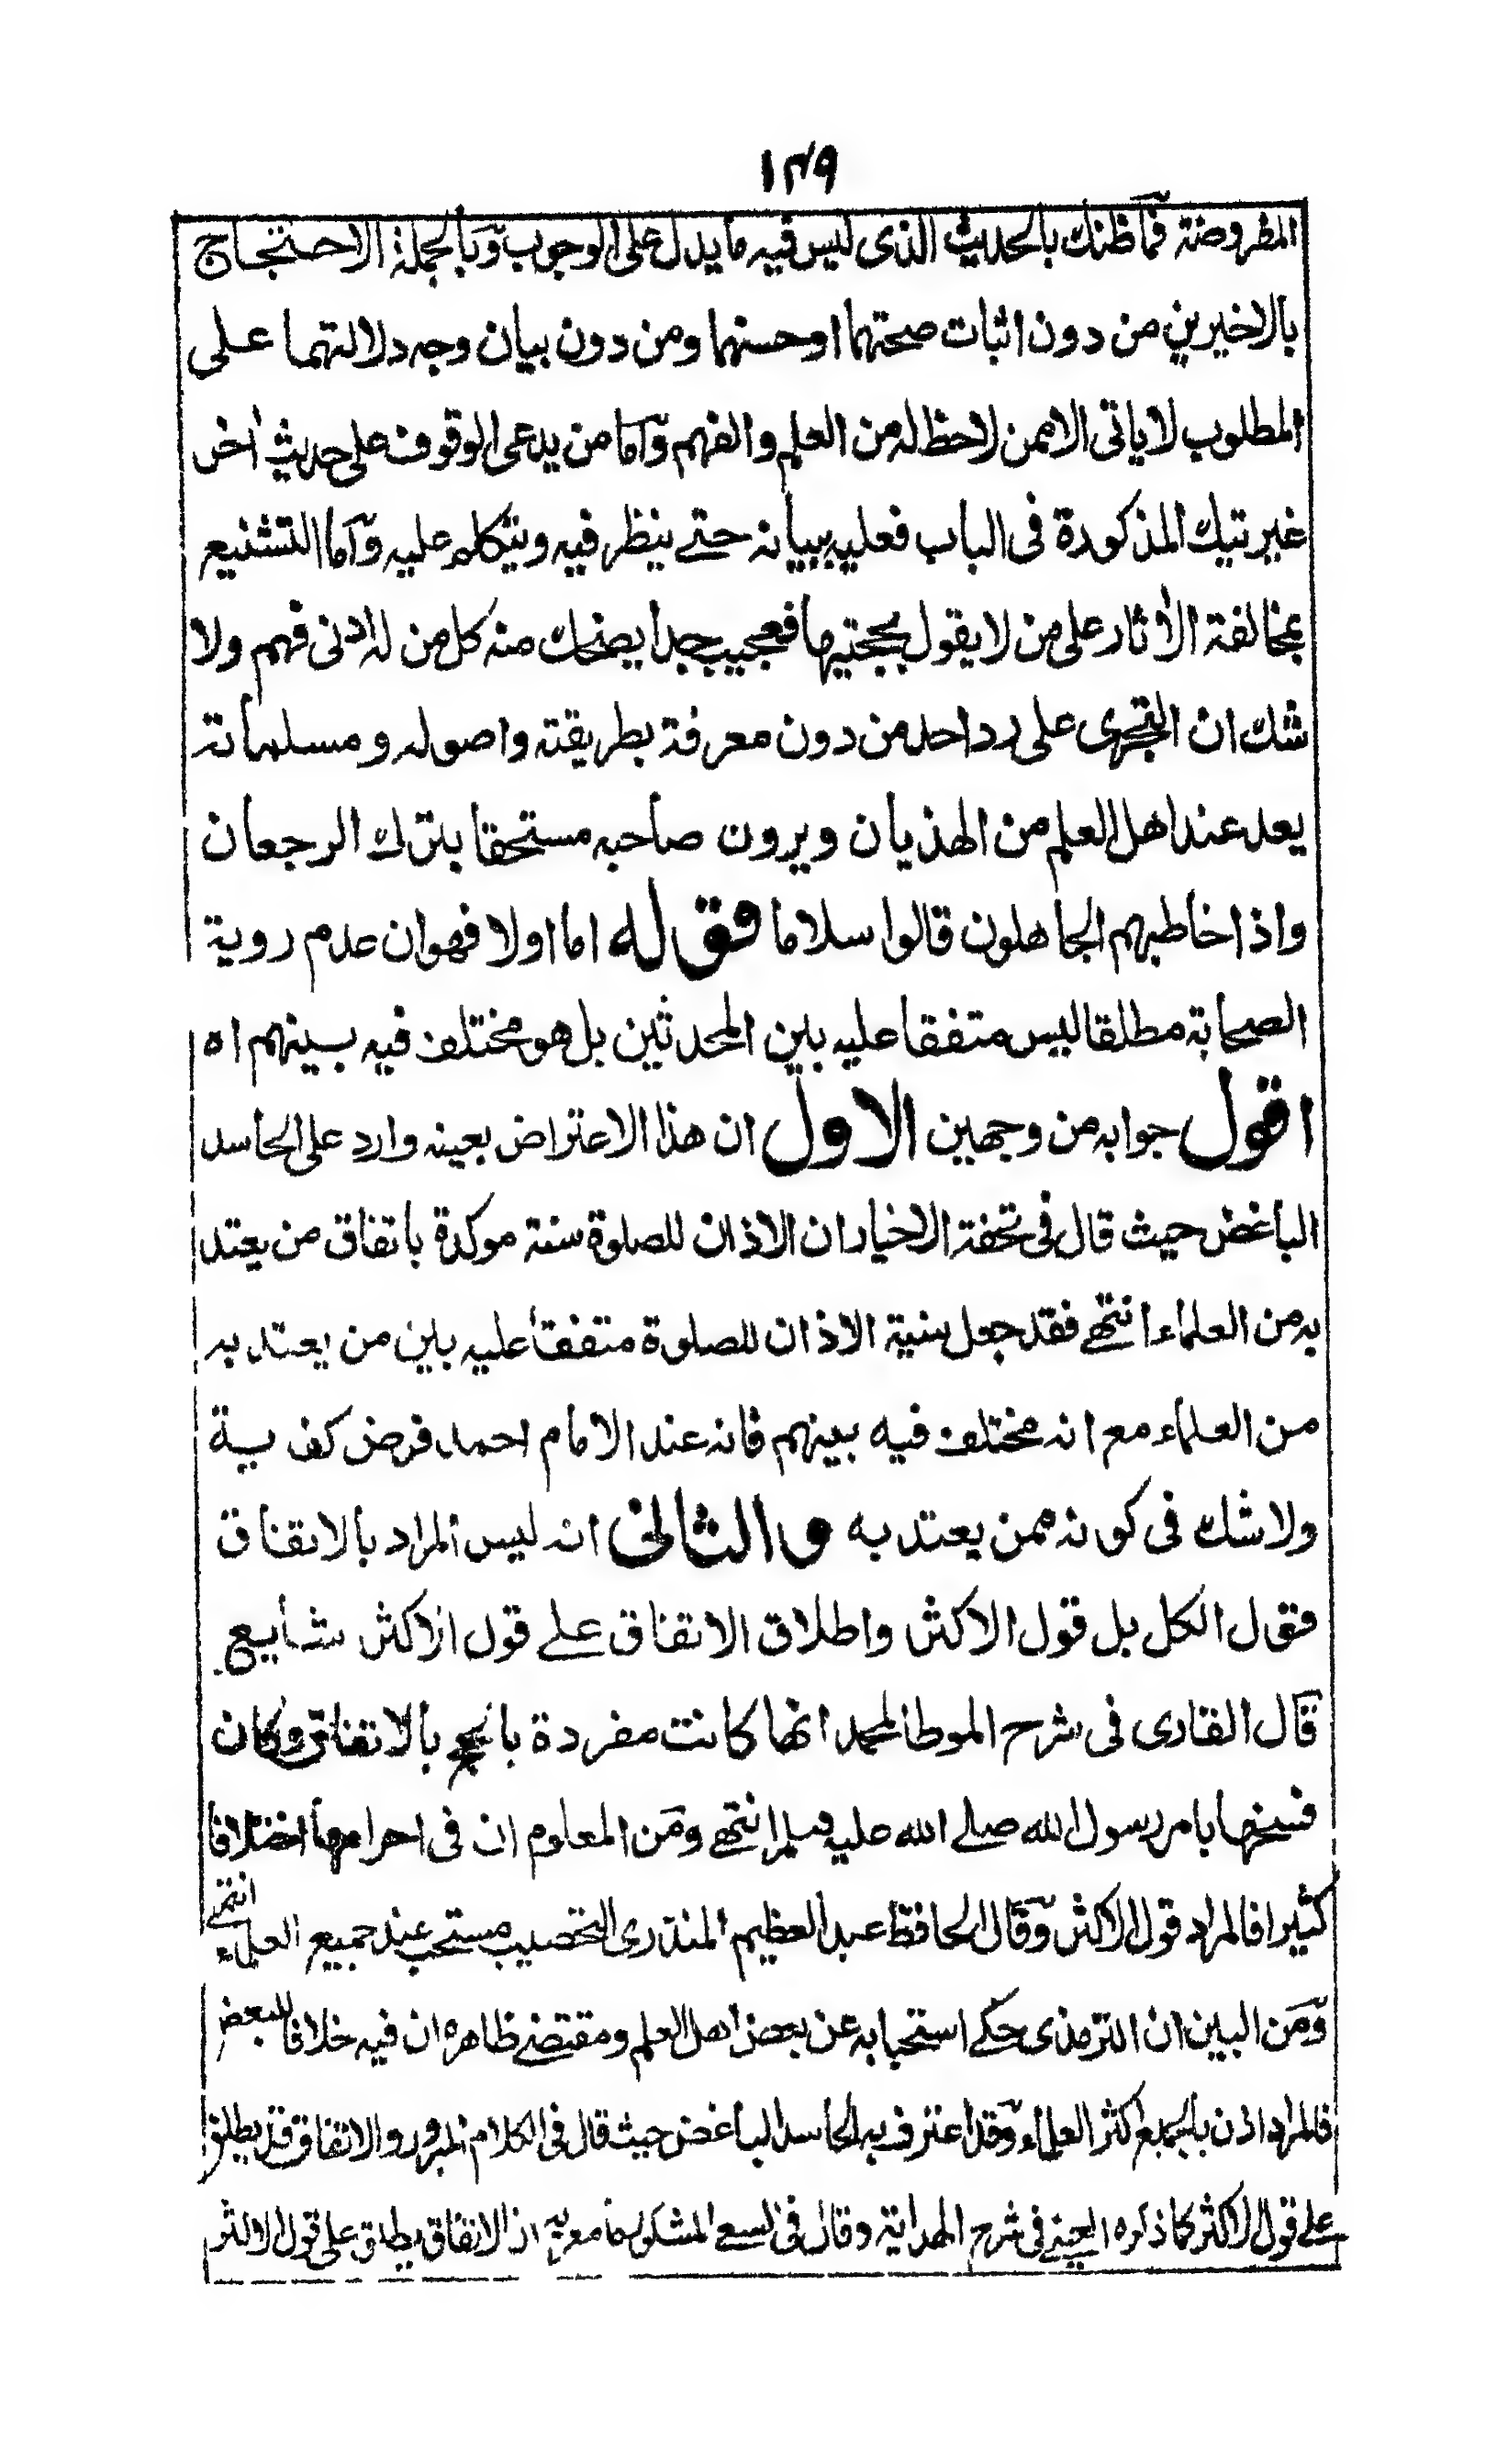 ١٤٩
المفروضة فما ظنك بالحديث الذى ليس فيه ما يدل على الوجوب وبالجملة الاحتجاج
بالاخيرين من دون اثبات صحتهما او حسنهما ومن دون بيان وجه دلالتهما على
المطلوب لا ياتى الا ممن لا حظ له من العلم والفهم وآما من يدعى الوقوف على حديث اٰخر
غير تيك المذكورة فى الباب فعليه ببيانه حتے ينظر فيه ويتكلم عليه وآما التشنيع
بمخالفة الاٰثار على من لا يقول بحجتيها فعجيب جدا يضحك منه كل من له ادنى فهم ولا
شك ان التجرى على رد احد من دون معرفة بطريقته واصوله ومسلماتة
يعد عند اهل العلم من الهذيان ويرون صاحبه مستحقا بترك الرجعان
واذا خاطبهم الجاهلون قالوا سلاما قوله اما اولا فهو ان عدم روية
الصحابة مطلقا ليس متفقا عليه بين المحدثين بل هو مختلف فيه بينهم اه
اقول جوابه من وجهين الاول ان هذا الاعتراض بعينه وارد على الحاسد
الباغض حيث قال فى تحفة الاخيار ان الاذان للصلوة سنة موكدة باتفاق من يعتد
به من العلماء انتهے فقد جعل سنية الاذان للصلوة متفقا عليه بين من يعتد به
من العلماء مع انه مختلف فيه بينهم فانه عند الامام احمد فرض كفاية
ولا شك فى كونه ممن يعتد به والثانى انه ليس المراد بالاتفاق
قول الكل بل قول الاكثر واطلاق الاتفاق علے قول الاكثر شايع
قال القارى فى شرح الموطا لمحمد انها كانت مفردة بالحج بالاتفاق وكان
فسخها بامر رسول الله صلے الله عليه وسلم انتهے ومن المعلوم ان فى احرامها اختلافا
كثيرا فالمراد قول الاكثر وقال الحافظ عبد العظيم المنذرى التحصيب مستحب عند جميع العلماء انتهے
ومن البين ان الترمذى حكے استحبابه عن بعض اهل العلم ومقتضے ظاهره ان فيه خلافا للبعض
فالمراد اذن بالجميع اكثر العلماء وقد اعترف به الحاسد الباغض حيث قال فى الكلام المبرور والاتفاق قد يطلق
علے قول الاكثر كما ذكره العينے فى شرح الهداية وقال فى السعے المشكور ما معربه ان الاتفاق يطلق على قول الاكثر